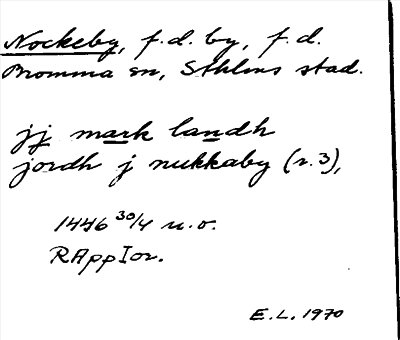 Nockeby, f.d. by, f.d.
Bromma sn, Sthlms stad.
jj mark landh
jordh j nukkaby (r. 3),
1446 30/4 u.o.
RAppIor.
E.L. 1970